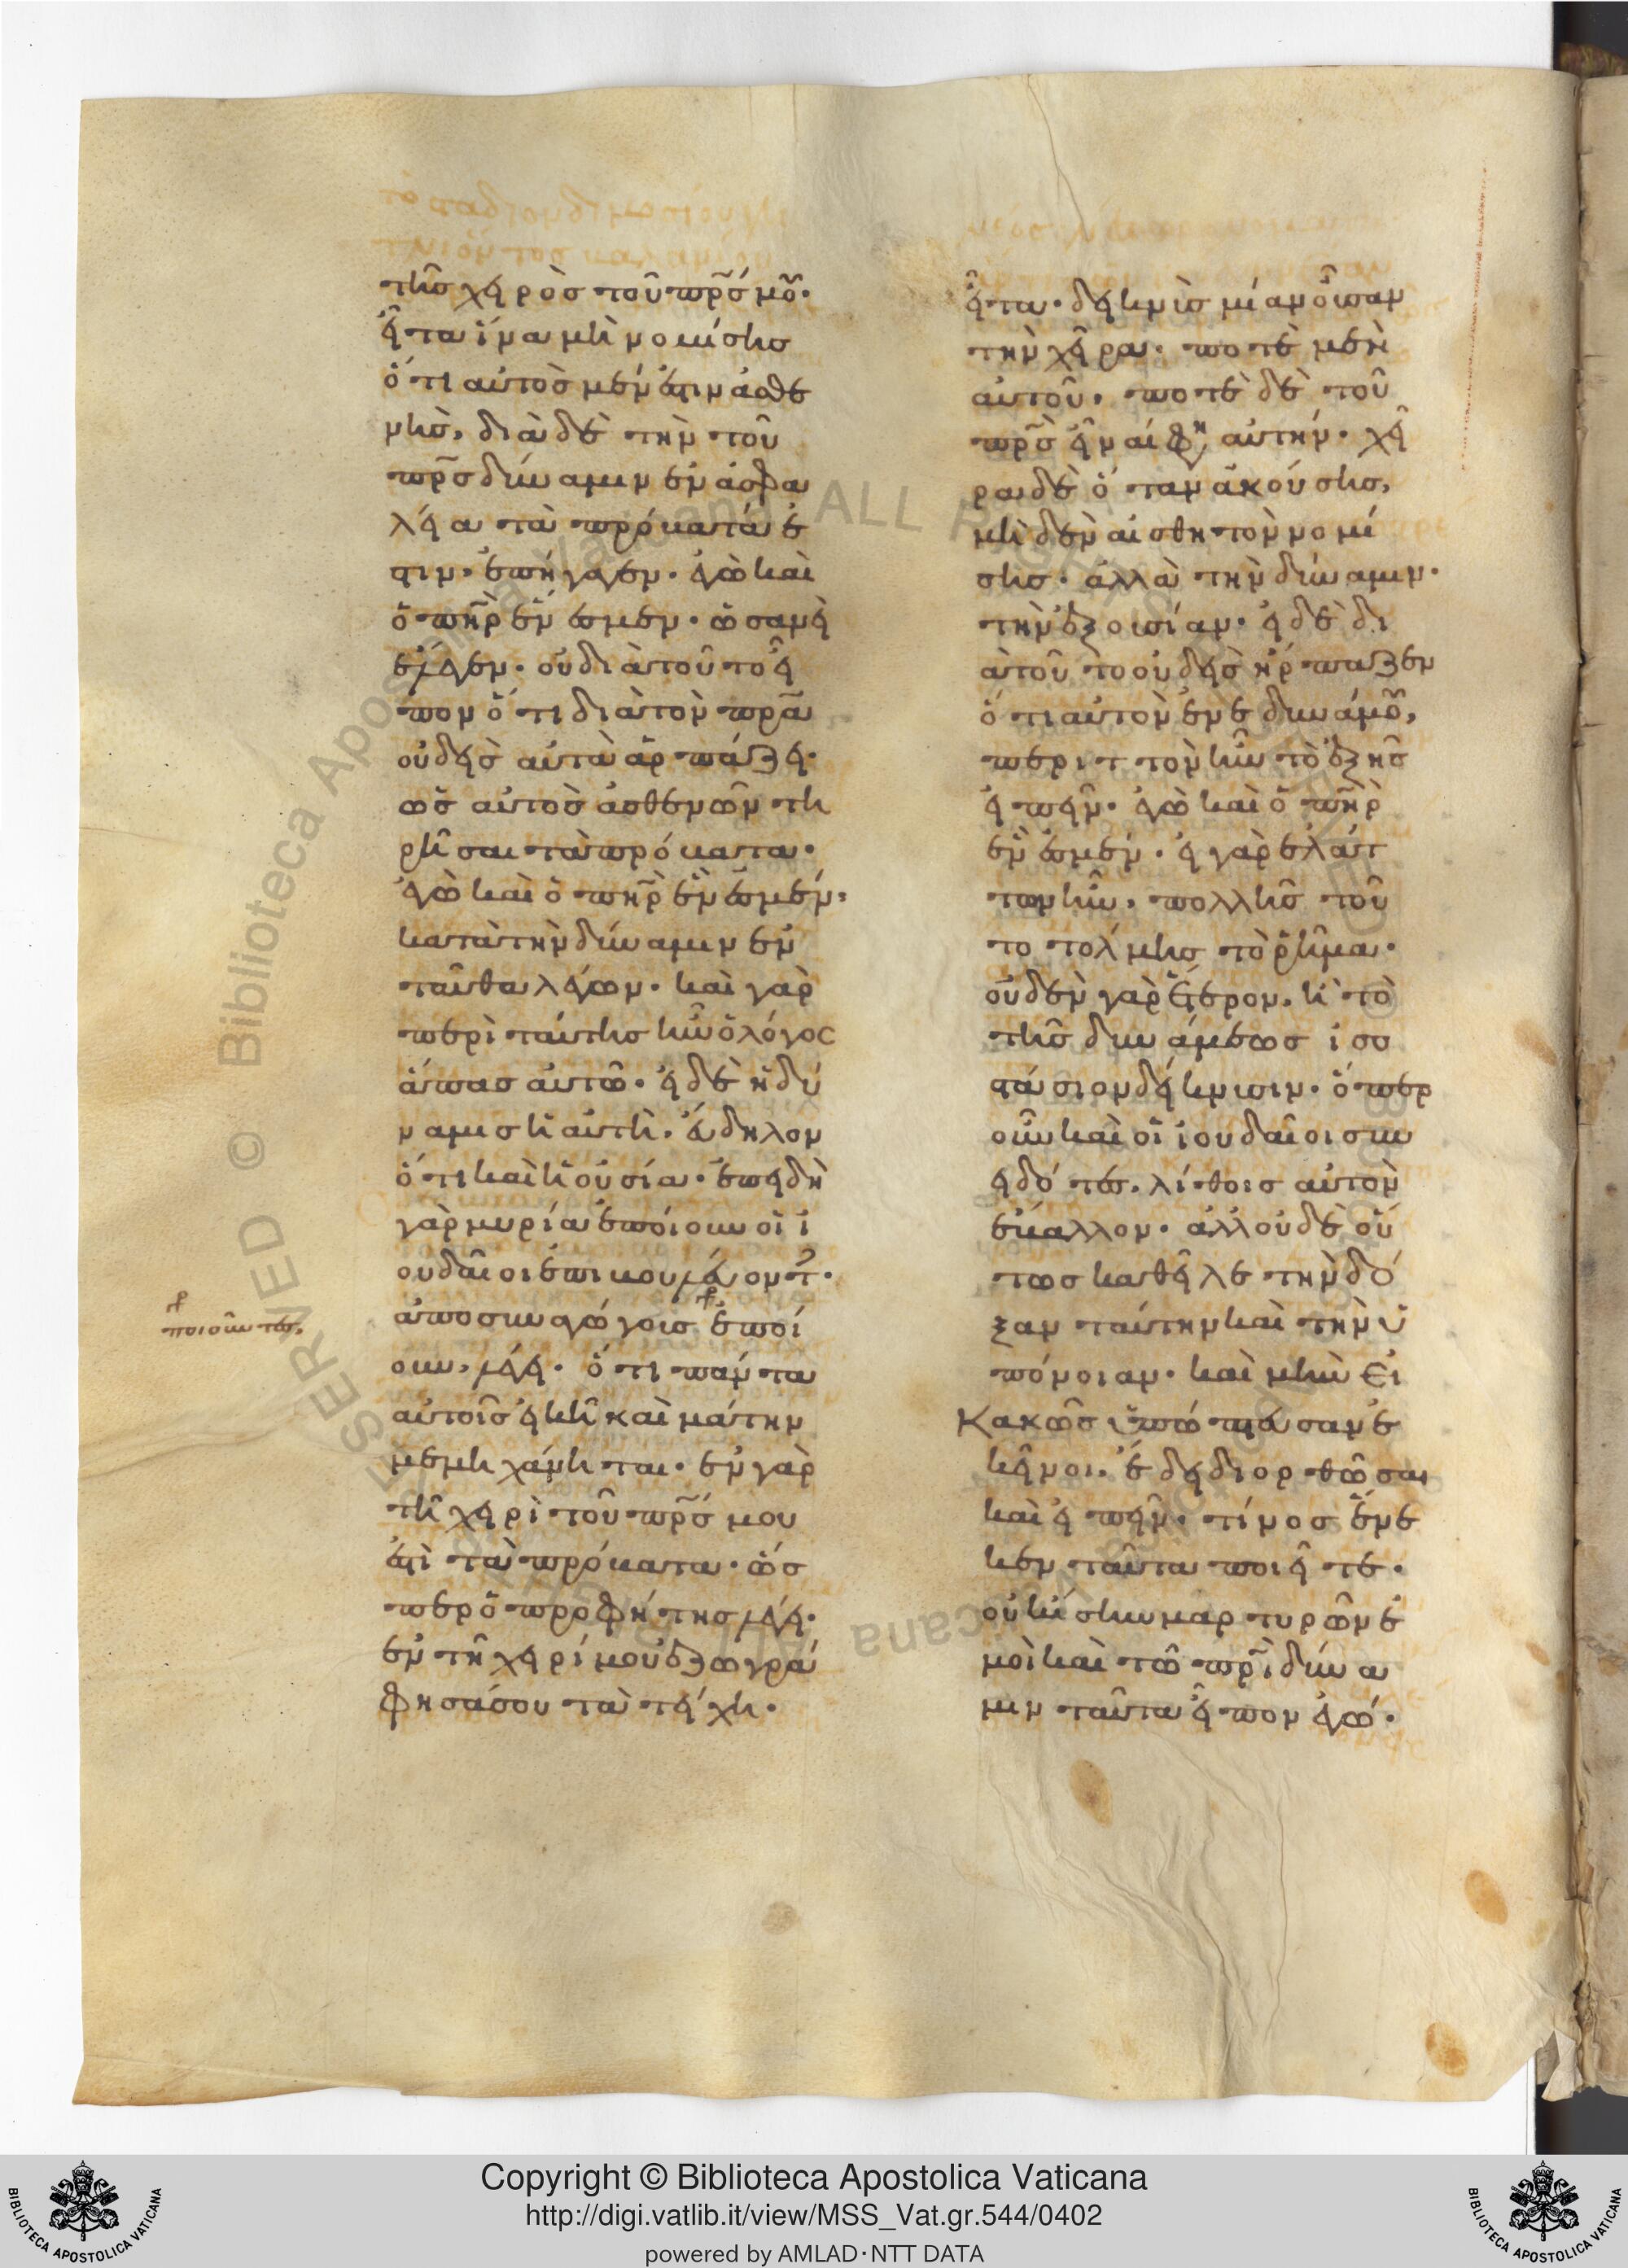 τῆς χειρὸς τοῦ πρς μου·
εἶτα ἵνα μὴ νομίσης
ὅτι αὐτὸς μέν ἐστιν ἀσθε
νὴς, διὰ δὲ τὴν τοῦ
πρς δύναμιν ἐν ἀσφα
λεία τὰ πρόβατά ἐ
στιν· ἐπήγαγεν· ἐγὼ καὶ
ὁ πηρ ἕν ἐσμεν· ὡσανεὶ
ἔλεγεν· οὐ διὰ τοῦτο εἶ
πον ὅτι διὰ τὸν πρα
οὐδεὶς αὐτὰ ἁρπάζει·
ὡς αὐτὸς ἀσθενῶν τη
ρῆσαι τὰ πρόβατα·
ἐγὼ καὶ ὁ πηρ ἕν ἐσμέν·
κατὰ τὴν δύναμιν ἐν
ταῦθα λέγων· καὶ γὰρ
περὶ ταύτης ἦν ὁ λόγος
ἅπας αὐτῶ· εἰ δὲ ἡ δύ
ναμις ἡ αὐτὴ, εὔδηλον
ὅτι καὶ ἡ οὐσία· ἐπειδὴ
γὰρ μυρία ἐποίουν οἱ ἰ
ουδαῖοι ἐπιβουλεύοντ·
ἀποσυναγώγους ἐποί
ουν, λέγει· ὅτι πάντα
αὐτοῖς εἰκῆ καὶ μάτην
μεμηχάνηται· ἐν γὰρ
τῆ χειρὶ τοῦ πρς μου
ἐστὶ τὰ πρόβατα· ὥσ
περ ὁ προφήτης λέγει·
ἐν τῆ χειρί μου ἐζωγρά
φησά σου τὰ τείχη·
ποιοῦντες,
εἶτα· δεικνὺς μίαν οὖσαν
τὴν χεῖρα· ποτὲ μὲν
αὐτοῦ, ποτὲ δὲ τοῦ
πρς εἶναί φη αὐτήν· χεῖ
ρα δὲ ὅταν ἀκούσης,
μηδὲν αἰσθητὸν νομί
σης· ἀλλὰ τὴν δύναμιν·
τὴν ἐξουσίαν· εἰ δὲ δι
ὰ τοῦτο οὐδεὶς ἥρπαζεν
ὅτι αὐτὸν ἐνεδυνάμου,
περιττὸν ἦν τὸ ἑξῆς
εἰπεῖν· ἐγὼ καὶ ὁ πηρ
ἕν ἐσμέν· εἰ γὰρ ἐλάτ
των ἦν, πολλῆς τοῦ
το τόλμης τὸ ῥῆμα·
οὐδὲν γὰρ ἕτερον, ἢ τὸ
τῆς δυνάμεως ἰσο
στάσιον δείκνυσιν· ὅπερ
οὖν καὶ οἱ ἰουδαῖοι συν
ειδότες, λίθοις αὐτὸν
ἔβαλλον· ἀλλ' οὐδὲ οὕ
τως καθεῖλε τὴν δό
ξαν ταύτην καὶ τὴν ὑ
πόνοιαν· καὶ μὴν εἰ
κακῶς ὑπώπτευσαν ἐ
κεῖνοι, ἔδει διορθῶσαι
καὶ εἰπεῖν· τίνος ἕνε
κεν ταῦτα ποιεῖτε·
οὐκ ἴσην μαρτυρῶν ἐ
μοὶ καὶ τῶ πρι δύνα
μιν ταῦτα εἶπον ἐγώ·
Copyright © Biblioteca Apostolica Vaticana
http://digi.vatlib.it/view/MSS_Vat.gr.544/0402
powered by AMLAD·NTT DATA